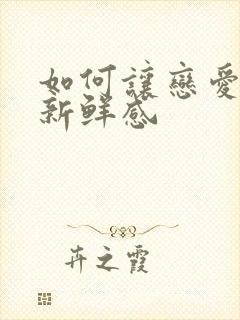 如何讓戀愛
新鮮感
卉之霞